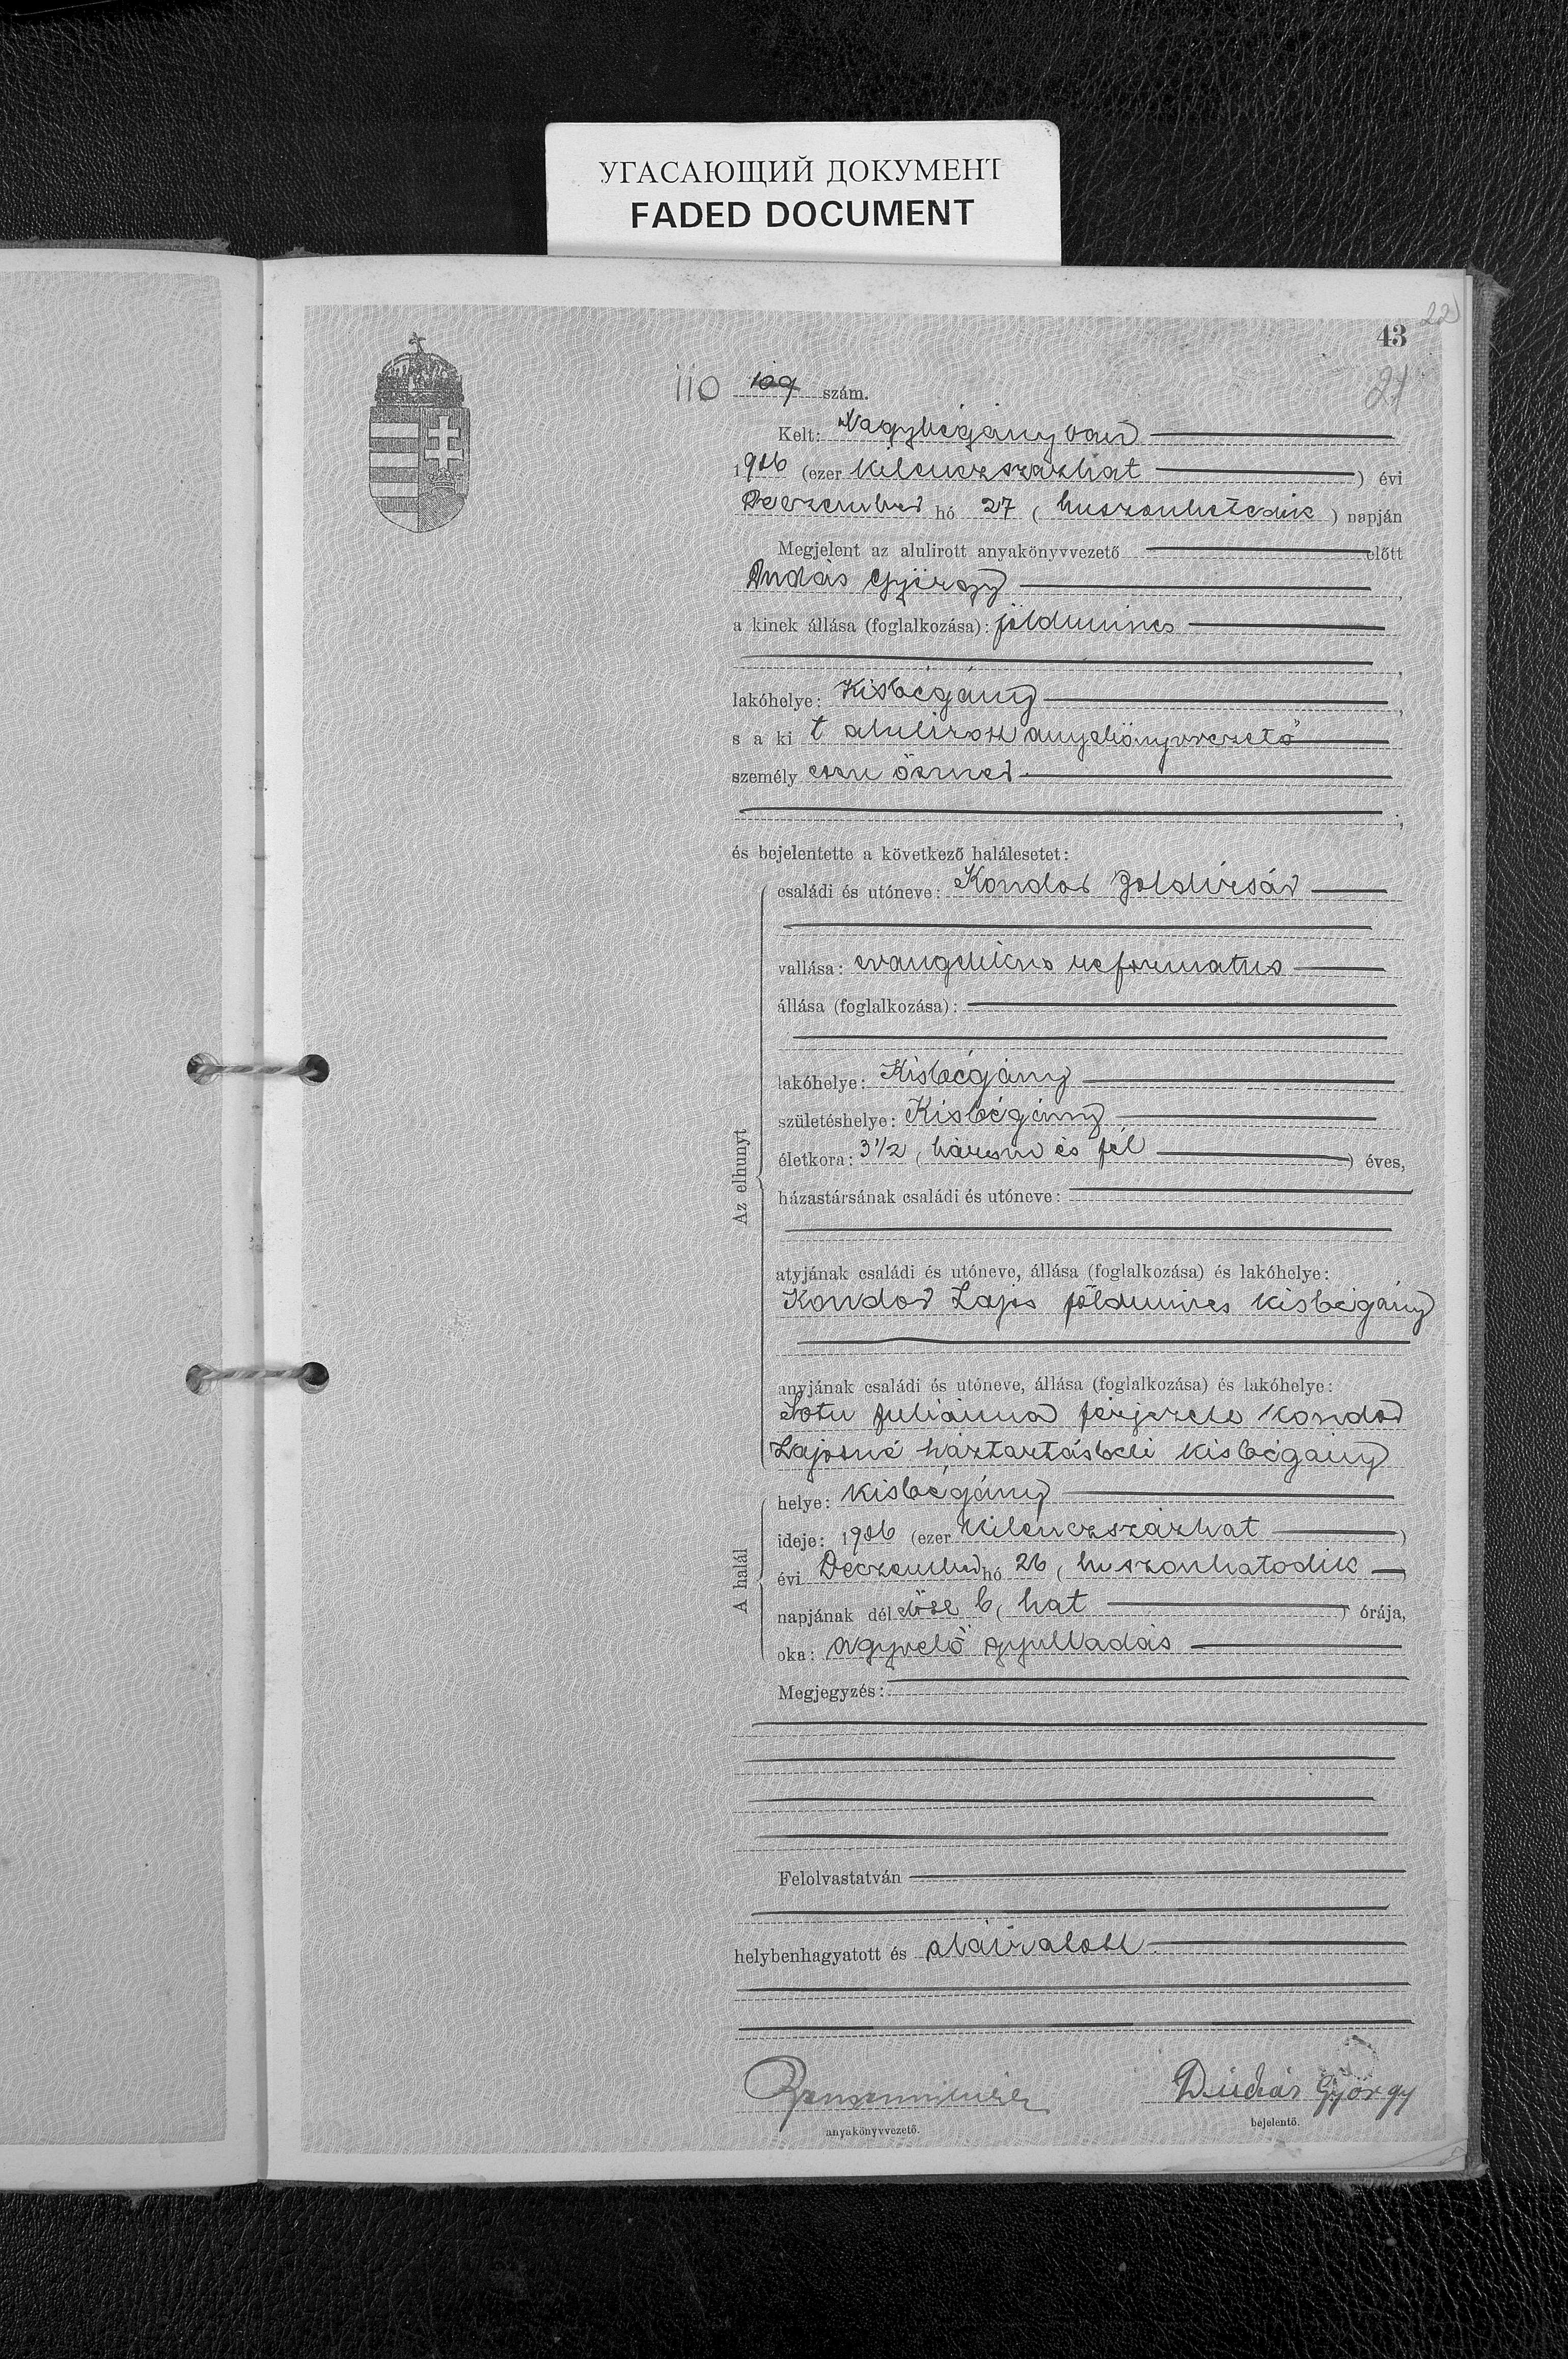 УГАСАЮЩИЙ ДОКУМЕНТ
FADED DOCUMENT
22
43
21
110 109 szám.
Kelt: Nagybégányban
1906 (ezer kilenczszázhat ) évi
Deczember hó 27 ( huszonhetedik ) napján
Megjelent az alulirott anyakönyvvezető előtt
Dudás György ,
a kinek állása (foglalkozása): földmíves
,
lakóhelye: Kisbégány ,
s a ki t alulirott anyakönyvvezető
személy esen ösmer
;
és bejelentette a következő halálesetet:
Az elhunyt
családi és utóneve: Kondor
vallása: evangelikus reformatus
állása (foglalkozása):
lakóhelye: Kisbégány
születéshelye: Kisbégány
életkora: 3½ ( három és fél ) éves,
házastársának családi és utóneve:
atyjának családi és utóneve, állása (foglalkozása) és lakóhelye:
Kondor Lajos földmíves Kisbégány
anyjának családi és utóneve, állása (foglalkozása) és lakóhelye:
Juliánna férjezett Kondor
Lajosné háztartásbeli Kisbégány
A halál
helye: Kisbégány
ideje: 1906 (ezer kilenczszázhat )
évi Deczember hó 26 ( huszonhatodik )
napjának dél előtt 6 ( hat ) órája,
oka: agyvelő gyulladás
Megjegyzés:
Felolvastatván
helybenhagyatott és aláiratott
Dudás György
anyakönyvvezető.
bejelentő.